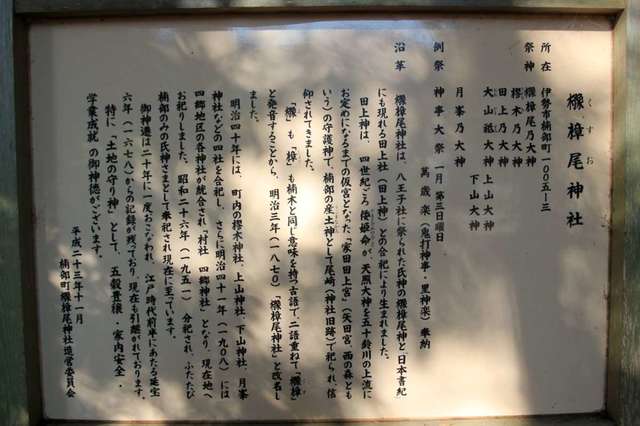 櫲樟尾神社
くすお
所在 伊勢市楠部町一〇〇五ー三
祭神 櫲樟尾乃大神
樛木乃大神
田上乃大神
大山祇大神 上山大神
下山大神
月峯乃大神
例祭 神事大祭 一月 第三日曜日
萬歳楽(鬼打神事・里神楽)奉納
沿革 櫲樟尾神社は、八王子社に祭られた氏神の櫲樟尾神と日本書紀
にも現れる田上社(田上神)との合祀により生まれました。
田上神は、四世紀ごろ倭姫命が天照大神を五十鈴川の上流に
お定めになるまでの仮宮となった「家田田上宮」(矢田宮、西の森とも
いう)の守護神で、楠部の産土神として尾崎(神社旧跡)で祀られ、信
仰されてきました。
「櫲」も「樟」も楠木と同じ意味を持つ古語で、二語重ねて「櫲樟」
と発音することから、明治三年(一八七〇)「櫲樟尾神社」と改名し
ました。
明治四十年には、町内の樛木神社、上山神社、下山神社、月峯
神社などの四社を合祀し、さらに明治四十一年(一九〇八)には
四郷地区の各神社が統合され「村社 四郷神社」となり、現在地へ
お祀りしました。昭和二十六年(一九五一) 分祀され、ふたたび
楠部のみの氏神さまとして奉祀され現在に至っています。
御神遷は二十年に一度おこなわれ、江戸時代前半にあたる延宝
六年(一六七八)からの記録が残っており、現在も引継がれております。
特に、「土地の守り神」として、五穀豊穣・家内安全・
学業成就の御神徳がございます。
平成二十三年十一月
楠部町櫲樟尾神社造営委員会